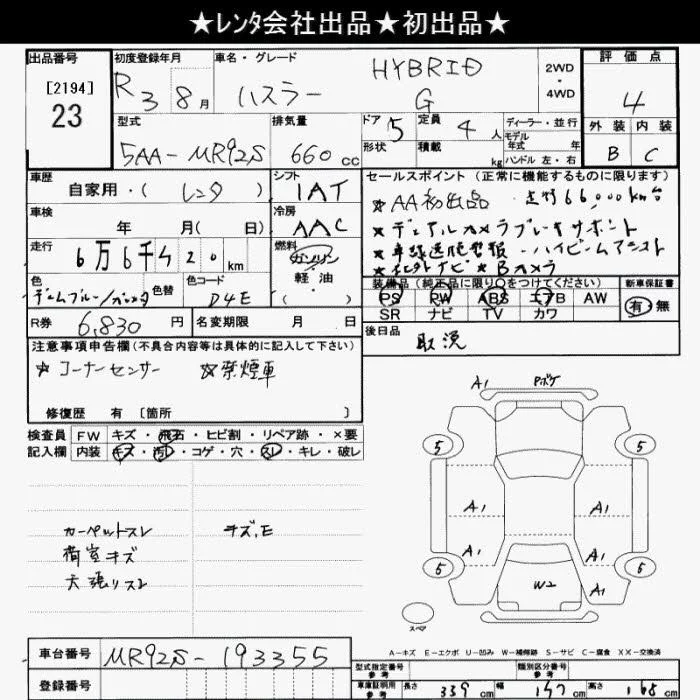 ★レンタ会社出品★初出品★
出品番号
[2194]
23
初度登録年月
R3 8月
車名・グレード
ハスラー
HYBRID
G
2WD
・
4WD
評価点
4
外装 内装
B C
型式
5AA-MR92S
排気量
660 cc
ドア 5
形状
定員 4 人
積載 kg
ディーラー・並行
モデル
年式 年
ハンドル 左・右
車歴
自家用・(レンタ)
シフト
IAT
車検
年 月( 日)
冷房
AAC
走行
6万6千 20 km
燃料
ガソリン
軽油
( )
色
色替
色コード
D4E
R券 6,830 円
名変期限 月 日
セールスポイント(正常に機能するものに限ります)
★AA初出品 ・走行66,000km台
★デュアルカメラブレーキサポート
★車線逸脱警報・ハイビームアシスト
★社外ナビ★Bカメラ
装備品(純正品に限り○をつけてください)
PS PW ABS エアB AW
SR ナビ TV カワ
新車保証書
有・無
後日品
取説
注意事項申告欄(不具合内容等は具体的に記入して下さい)
☆コーナーセンサー ☆禁煙車
修復歴 有 [箇所 ]
検査員
記入欄
FW キズ・飛石・ヒビ割・リペア跡・×要
内装 キズ・汚れ・コゲ・穴・スレ・キレ・破レ
カーペットスレ
荷室キズ
天張リスレ
キズ、E
A1 Pボケ
5 5
A1 A1
A1 A1
5 5
W2 A1
スペア
A-キズ E-エクボ U-凹み W-補修跡 S-サビ C-腐食 XX-交換済
車台番号
MR92S-193355
登録番号
型式指定番号
参考
類別区分番号
参考
車庫証明用
参考
長さ 339 cm 幅 147 cm 高さ 168 cm